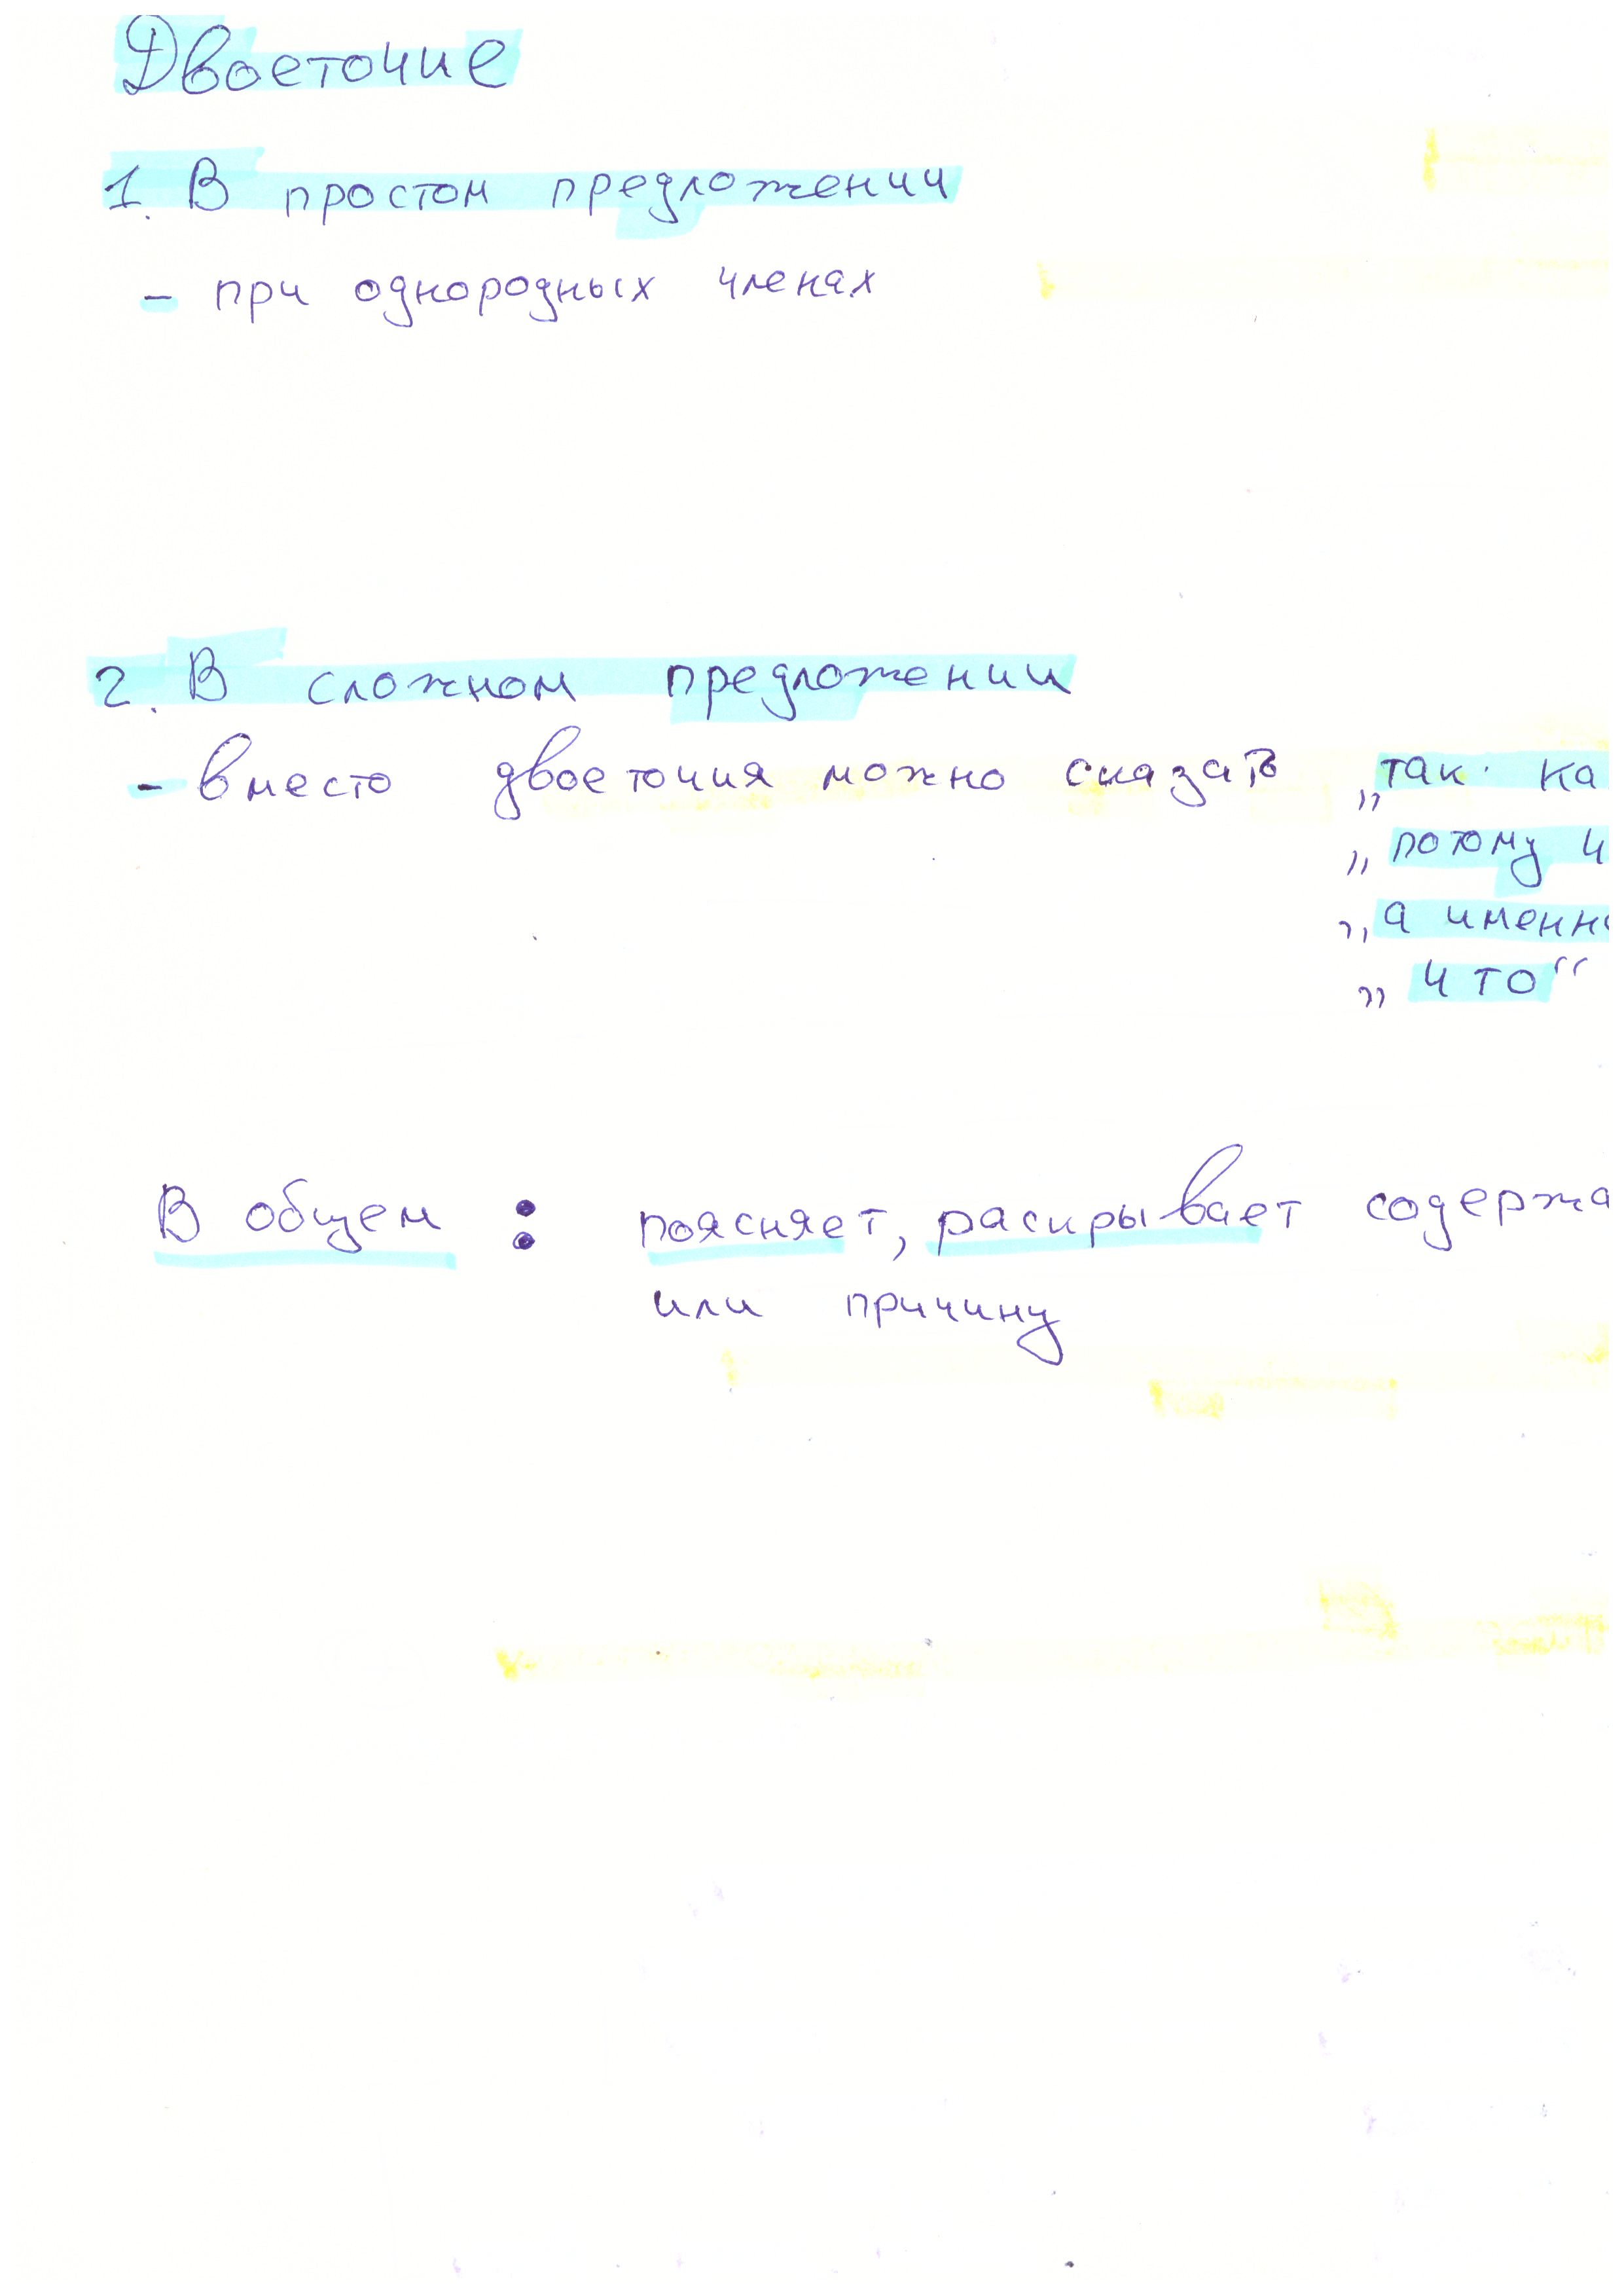 Двоеточие
1. В простом предложении
- при однородных членах
2. В сложном предложении
- вместо двоеточия можно сказать „так ка
„потому ч
„а именно
„что“
В общем : поясняет, раскрывает содержа
или причину